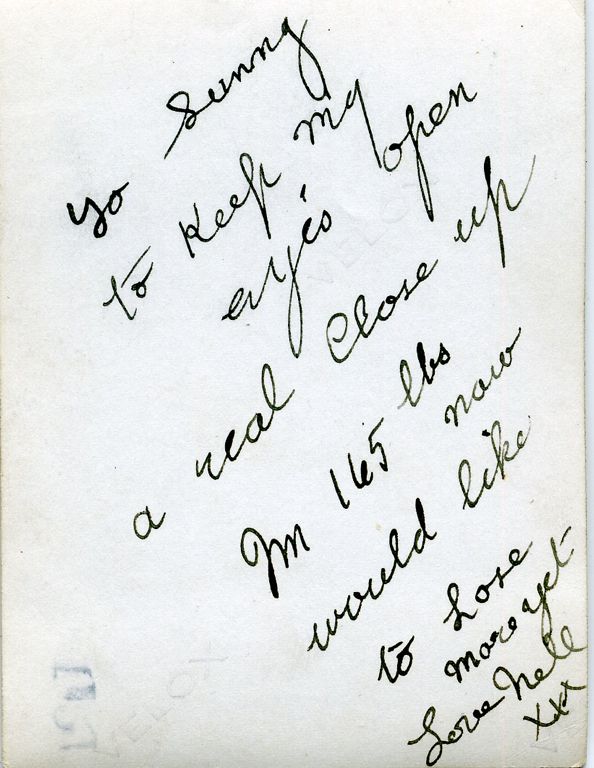 yo Sunny
to Keep my
eyes open
a real Close up
Im 165 lbs
now
would like
to Lose
more yet
Love Nell
xxx